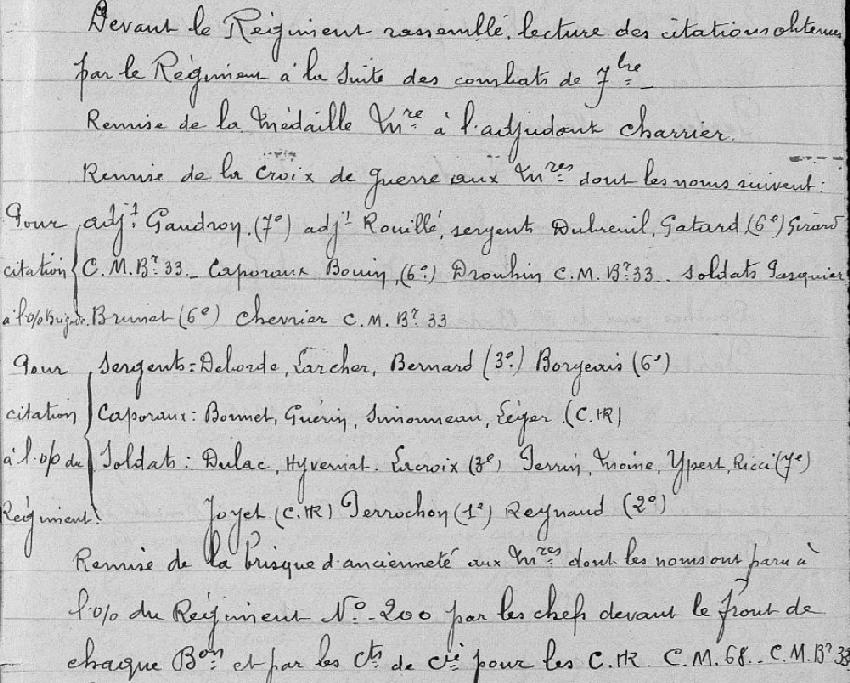 Devant le Régiment rassemblé, lecture des citations obtenues
par le Régiment à la suite des combats de 7bre
Remise de la Médaille Mre à l'adjudant Charrier.
Remise de la Croix de guerre aux Mres dont les noms suivent :
Pour adjt Gaudron, (7e) adjt Rouillé, sergents Dubreuil, Gatard (6e) Girard
citation C.M.Bre 33 _ Caporaux Bouin, (6e) Drouhin C.M.Bre 33 _ Soldats Pasquier
à l'o/o Brigade. Brunet (6e) Chevrier C.M.Bre 33
Pour Sergents : Deborde, Larcher, Bernard (3e) Borgeais (6e)
citation Caporaux : Bonnet, Guérin, Simonneau, Léger (C.HR)
à l'o/o du Soldats : Dulac, Hyvernat. Lacroix (3e) Perrin, Moine, Ypert, Ricci (7e)
Régiment. Joyet (C.HR) Perrochon (1e) Reynaud (2e)
Remise de la brisque d'ancienneté aux Mres dont les noms ont paru à
l'o/o du Régiment No 200 par les chefs devant le front de
chaque Bon et par les Cts de Cie pour les C.HR C.M. 68 _ C.M.Bre 33